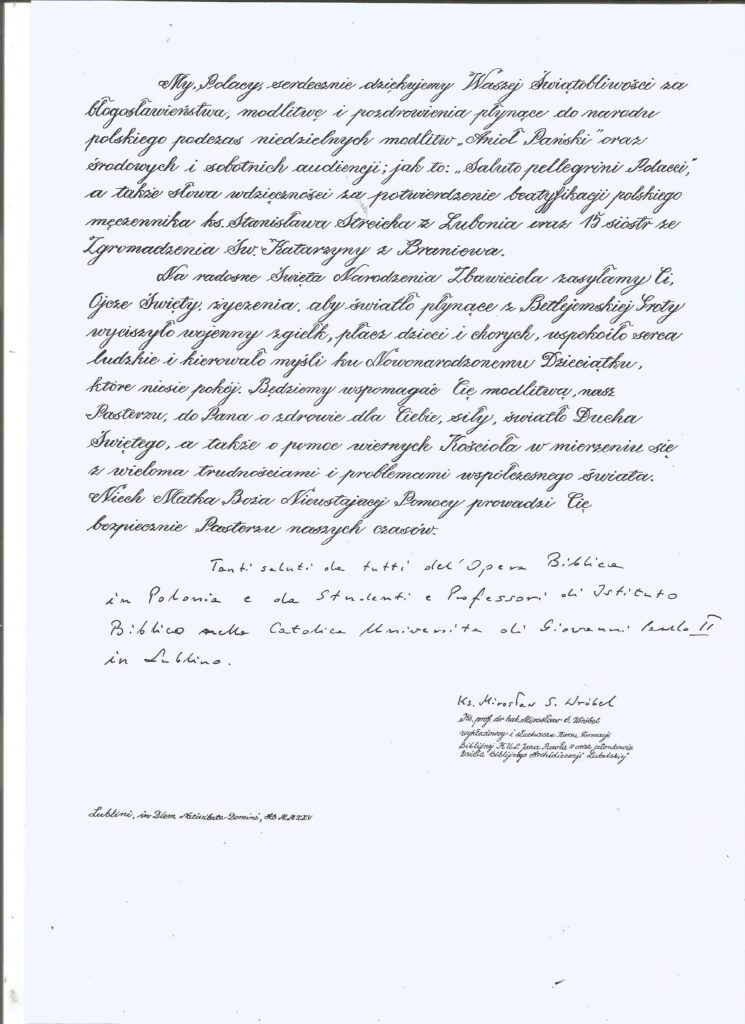 My, Polacy, serdecznie dziękujemy Waszej Świątobliwości za
błogosławieństwa, modlitwę i pozdrowienia płynące do narodu
polskiego podczas niedzielnych modlitw „Anioł Pański" oraz
środowych i sobotnich audiencji; jak to: „Saluto pellegrini Polacci",
a także słowa wdzięczności za potwierdzenie beatyfikacji polskiego
męczennika ks. Stanisława Streicha z Lubonia oraz 15 sióstr ze
Zgromadzenia Św. Katarzyny z Braniewa.
Na radosne Święta Narodzenia Zbawiciela zasyłamy Ci,
Ojcze Święty, życzenia, aby światło płynące z Betlejemskiej Groty
wyciszyło wojenny zgiełk, płacz dzieci i chorych, uspokoiło serca
ludzkie i kierowało myśli ku Nowonarodzonemu Dzieciątku,
które niesie pokój. Będziemy wspomagać Cię modlitwą, nasz
Pasterzu, do Pana o zdrowie dla Ciebie, siły, światło Ducha
Świętego, a także o pomoc wiernych Kościoła w mierzeniu się
z wieloma trudnościami i problemami współczesnego świata.
Niech Matka Boża Nieustającej Pomocy prowadzi Cię
bezpiecznie Pasterzu naszych czasów.
Tanti saluti da tutti del'Opera Biblica
in Polonia e da Studenti e Professori di Istituto
Biblico nella Catolica Universita di Giovanni Paulo II
in Lublino.
Ks. Mirosław S. Wróbel
Ks. prof. dr hab. Mirosław S. Wróbel
wykładowcy i słuchacze Kursu Formacji
Biblijnej KUL Jana Pawła II oraz członkowie
Dzieła Biblijnego Archidiecezji Lubelskiej
Lublini, in Diem Nativitate Domini, AD MMXXV